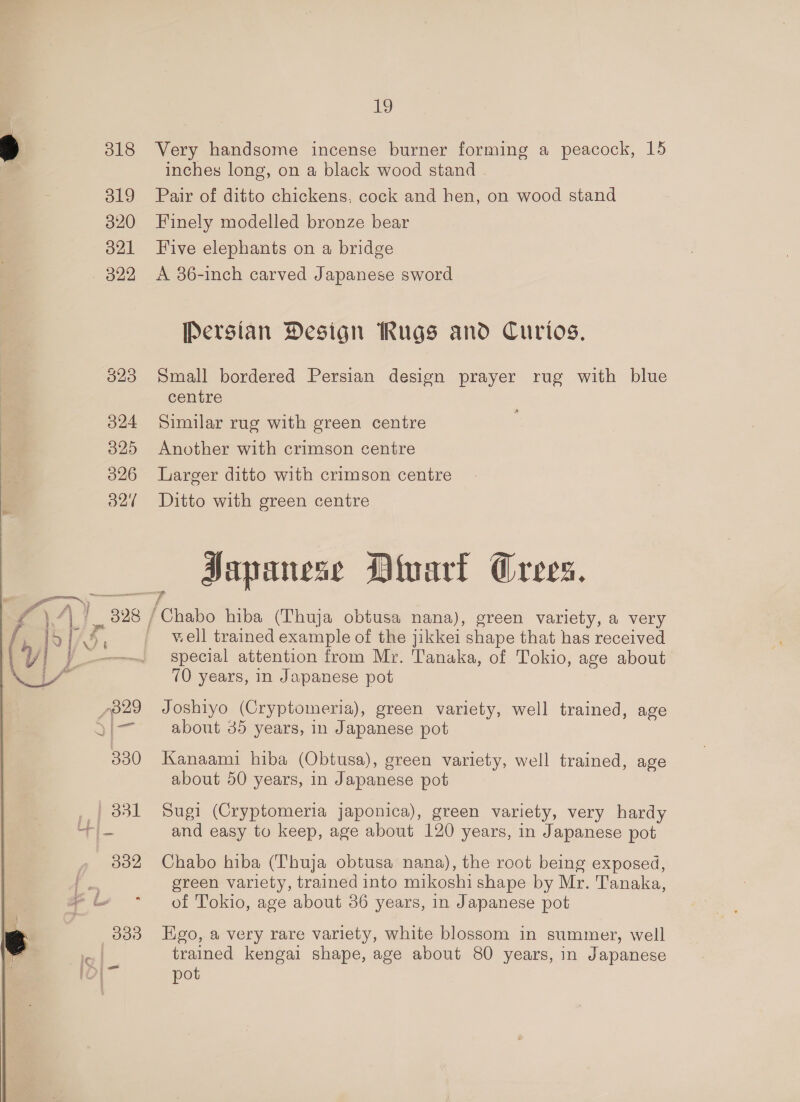 19
318 Very handsome incense burner forming a peacock, 15
inches long, on a black wood stand
319 Pair of ditto chickens, cock and hen, on wood stand
320 Finely modelled bronze bear
321 Five elephants on a bridge
322 A 36-inch carved Japanese sword
Persian Design Rugs and Curios.
323 Small bordered Persian design prayer rug with blue
centre
324 Similar rug with green centre
325 Another with crimson centre
326 Larger ditto with crimson centre
327 Ditto with green centre
Japanese Dwarf Trees.
328 Chabo hiba (Thuja obtusa nana), green variety, a very
well trained example of the jikkei shape that has received
special attention from Mr. Tanaka, of Tokio, age about
70 years, in Japanese pot
329 Joshiyo (Cryptomeria), green variety, well trained, age
about 35 years, in Japanese pot
330 Kanaami hiba (Obtusa), green variety, well trained, age
about 50 years, in Japanese pot
331 Sugi (Cryptomeria japonica), green variety, very hardy
and easy to keep, age about 120 years, in Japanese pot
332 Chabo hiba (Thuja obtusa nana), the root being exposed,
green variety, trained into mikoshi shape by Mr. Tanaka,
of Tokio, age about 36 years, in Japanese pot
333 Ego, a very rare variety, white blossom in summer, well
trained kengai shape, age about 80 years, in Japanese
pot